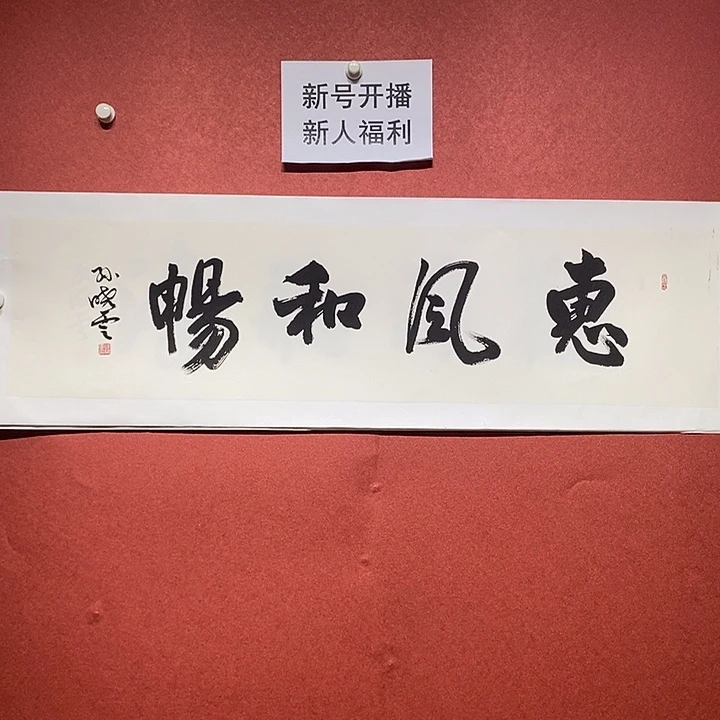 新号开播
新人福利
惠风和暢
孙晓云